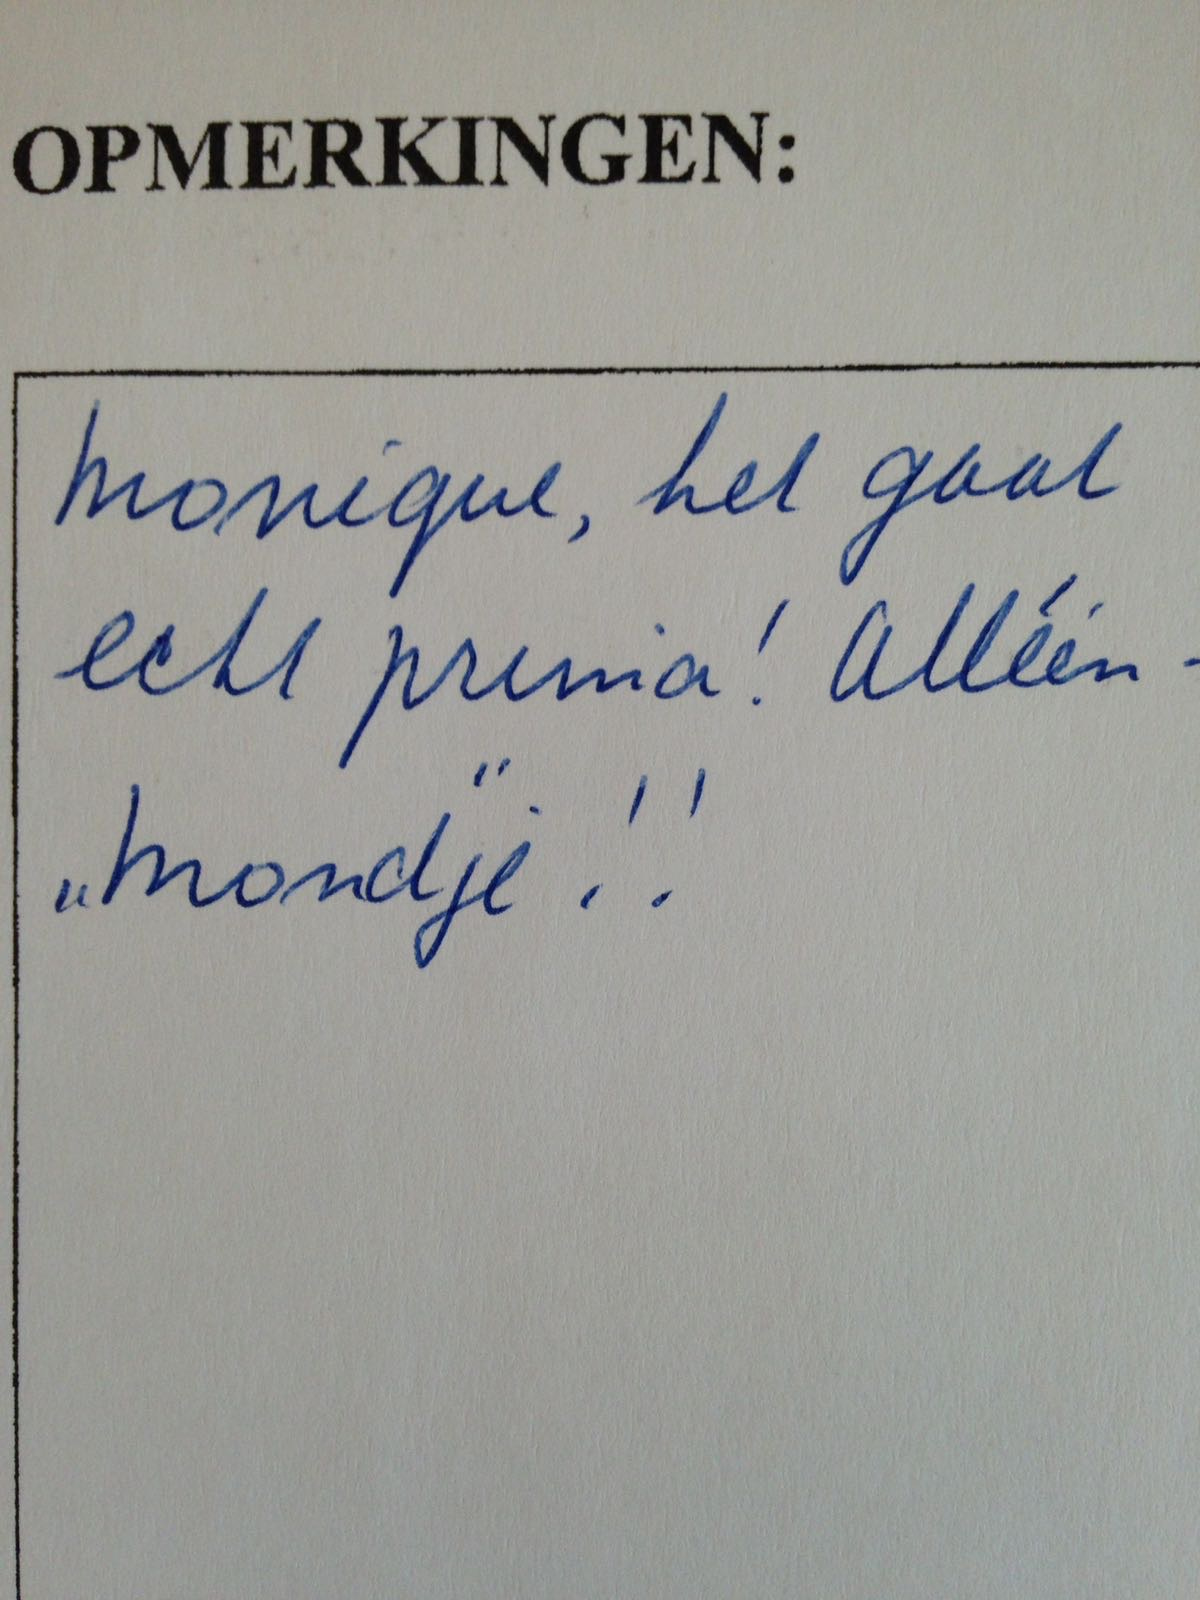 OPMERKINGEN:
Monique, het gaat
echt prima! Alléén -
„Mondje”!!